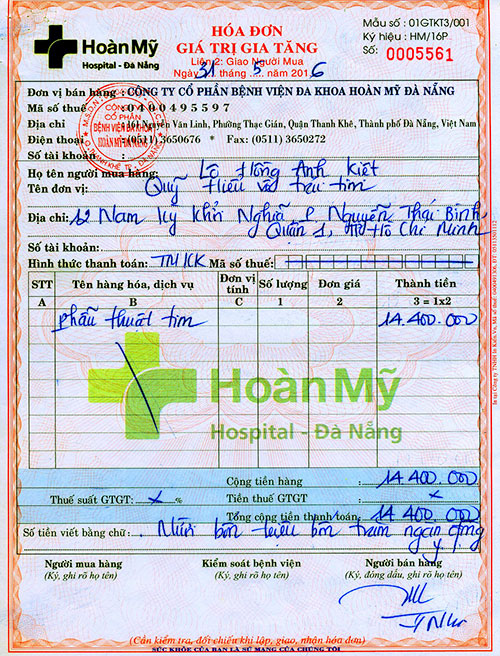 HÓA ĐƠN
GIÁ TRỊ GIA TĂNG
Liên 2: Giao Người Mua
Ngày 31 tháng 5 năm 2016
Mẫu số : 01GTKT3/001
Ký hiệu : HM/16P
Số: 0005561
Hoàn Mỹ
Hospital - Đà Nẵng
Đơn vị bán hàng : CÔNG TY CỔ PHẦN BỆNH VIỆN ĐA KHOA HOÀN MỸ ĐÀ NẴNG
Mã số thuế : 0400495597
Địa chỉ : 161 Nguyễn Văn Linh, Phường Thạc Gián, Quận Thanh Khê, Thành phố Đà Nẵng, Việt Nam
Điện thoại : (0511) 3650676 * Fax: (0511) 3650272
Số tài khoản :
CÔNG TY CỔ PHẦN BỆNH VIỆN ĐA KHOA HOÀN MỸ ĐÀ NẴNG
Họ tên người mua hàng: Lô Hồng Anh Kiệt
Tên đơn vị: Quỹ Hiểu về trái tim
Địa chỉ: 12 Nam Kỳ Khởi Nghĩa P Nguyễn Thái Bình,
Quận 1, TP Hồ Chí Minh
Số tài khoản:
Hình thức thanh toán: TM/CK Mã số thuế:
STT Tên hàng hóa, dịch vụ Đơn vị tính Số lượng Đơn giá Thành tiền
A B C 1 2 3 = 1x2
phẫu thuật tim 14.400.000
Hoàn Mỹ
Hospital - Đà Nẵng
Cộng tiền hàng : 14.400.000
Thuế suất GTGT: x % Tiền thuế GTGT : x
Tổng cộng tiền thanh toán: 14.400.000
Số tiền viết bằng chữ: Mười bốn triệu bốn trăm ngàn đồng
y.
Người mua hàng Kiểm soát bệnh viện Người bán hàng
(Ký, ghi rõ họ tên) (Ký, ghi rõ họ tên) (Ký, đóng dấu, ghi rõ họ tên)
(Cần kiểm tra, đối chiếu khi lập, giao, nhận hóa đơn)
SỨC KHỎE CỦA BẠN LÀ SỨ MẠNG CỦA CHÚNG TÔI